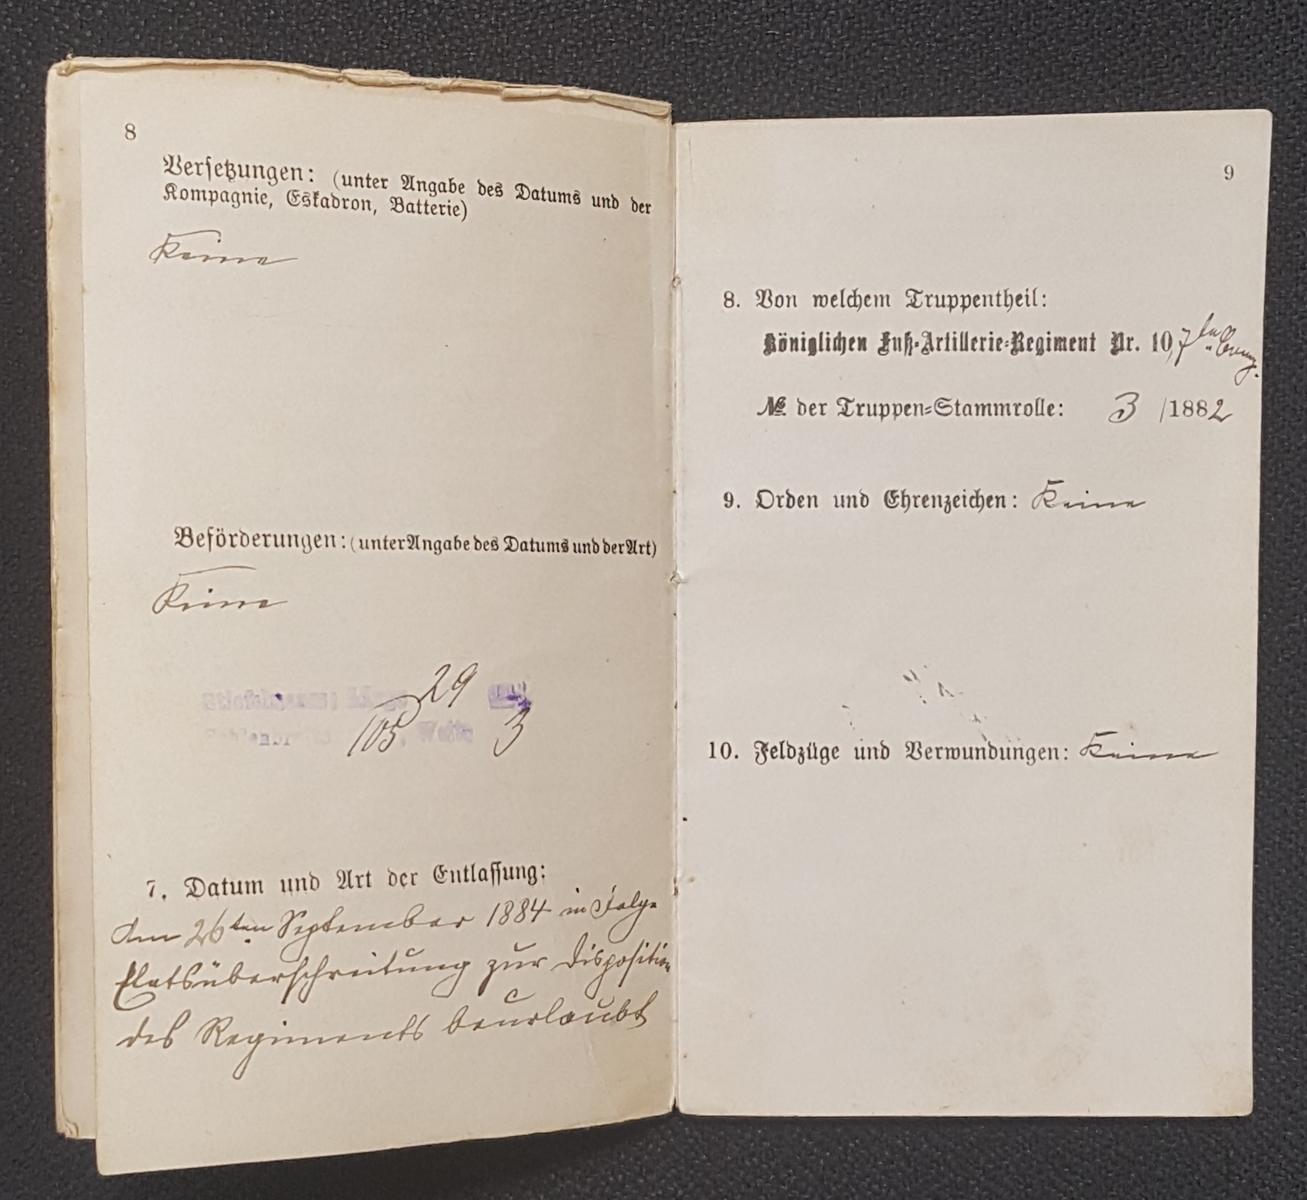 8
Versetzungen: (unter Angabe des Datums und der
Kompagnie, Eskadron, Batterie)
Keine
Beförderungen: (unter Angabe des Datums und der Art)
Keine
29
105 3
7. Datum und Art der Entlassung:
Am 26ten September 1884 in Folge
Etatsüberschreitung zur Disposition
des Regiments beurlaubt
9
8. Von welchem Truppentheil:
Königlichen Fuß-Artillerie-Regiment Nr. 10, 7te Comp.
№ der Truppen-Stammrolle: 3 /1882
9. Orden und Ehrenzeichen: Keine
10. Feldzüge und Verwundungen: Keine